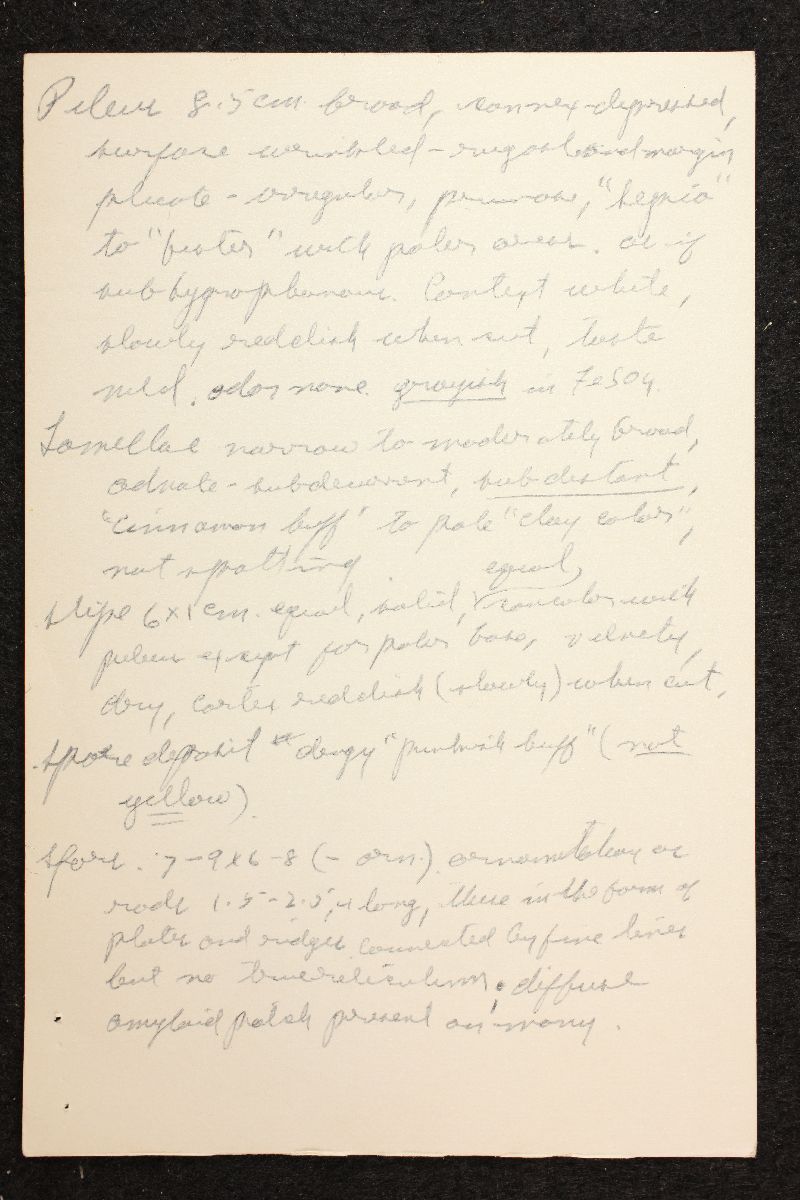 Pileus 8.5 cm broad, convex-depressed,
surface wrinkled-rugose and margin
plicate - irregular, pruinose, "sepia"
to "bister" with paler areas. as if
subhygrophanous. Context white,
slowly reddish when cut, taste
mild. odor none. grayish in FeSO4.
Lamellae narrow to moderately broad,
adnate-subdecurrent, subdistant,
"cinnamon buff" to pale "clay color",
not spotting
equal,
stipe 6x1 cm. equal, solid, concolor with
pileus except for paler base, velvety,
dry, cortex reddish (slowly) when cut,
Spore deposit dingy "pinkish buff" (not
yellow).
spores. 7-9x6-8 (- orn.). ornamentation as
rods 1.5-2.5 µ long, these in the form of
plates and ridges connected by fine lines
but no true reticulum, diffuse
amyloid patch present on many.